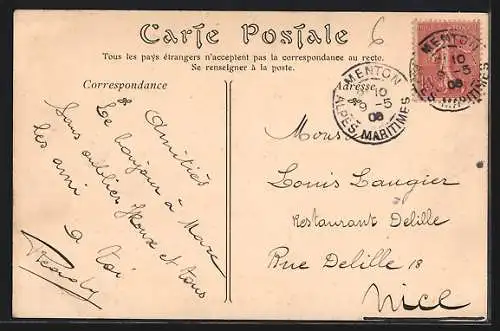 Carte Postale
6
Tous les pays étrangers n'acceptent pas la correspondance au recto.
Se renseigner à la poste.
Correspondance
Adresse
MENTON
10
9-5
08
ALPES MARITIMES
MENTON
10
5
08
MARITIMES
Amitiés
Le bonjour à Marc
Sans oublier Youx et tous
les ami
a toi
Mons
Louis Laugier
Restaurant Delille
Rue Delille 18
Nice